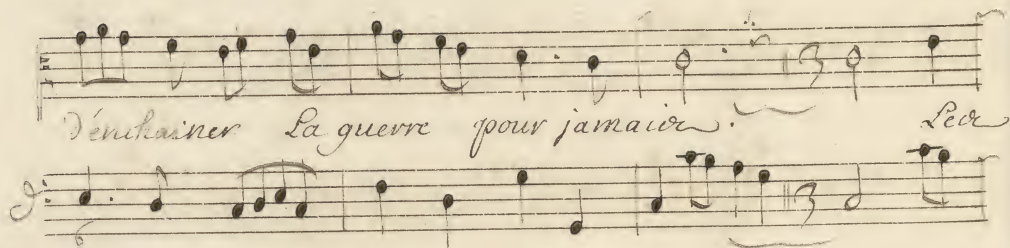 d'enchainer La guerre pour jamais. Les
6